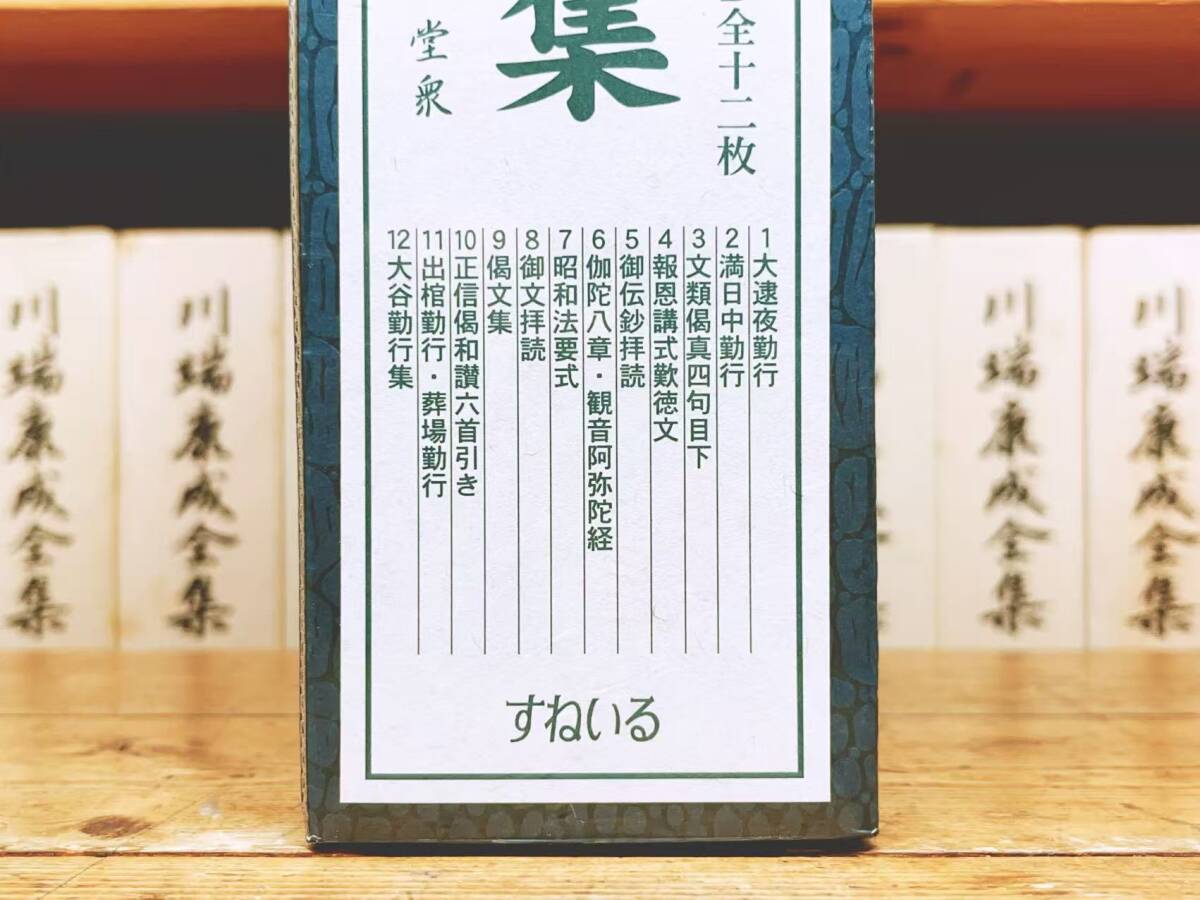 全十二枚
集
堂衆
1大逮夜勤行
2満日中勤行
3文類偈真四句目下
4報恩講式歎徳文
5御伝鈔拝読
6伽陀八章・観音阿弥陀経
7昭和法要式
8御文拝読
9偈文集
10正信偈和讃六首引き
11出棺勤行・葬場勤行
12大谷勤行集
すねいる
川端康成全集
川端康成全集
川端康成全集
川端康成全集